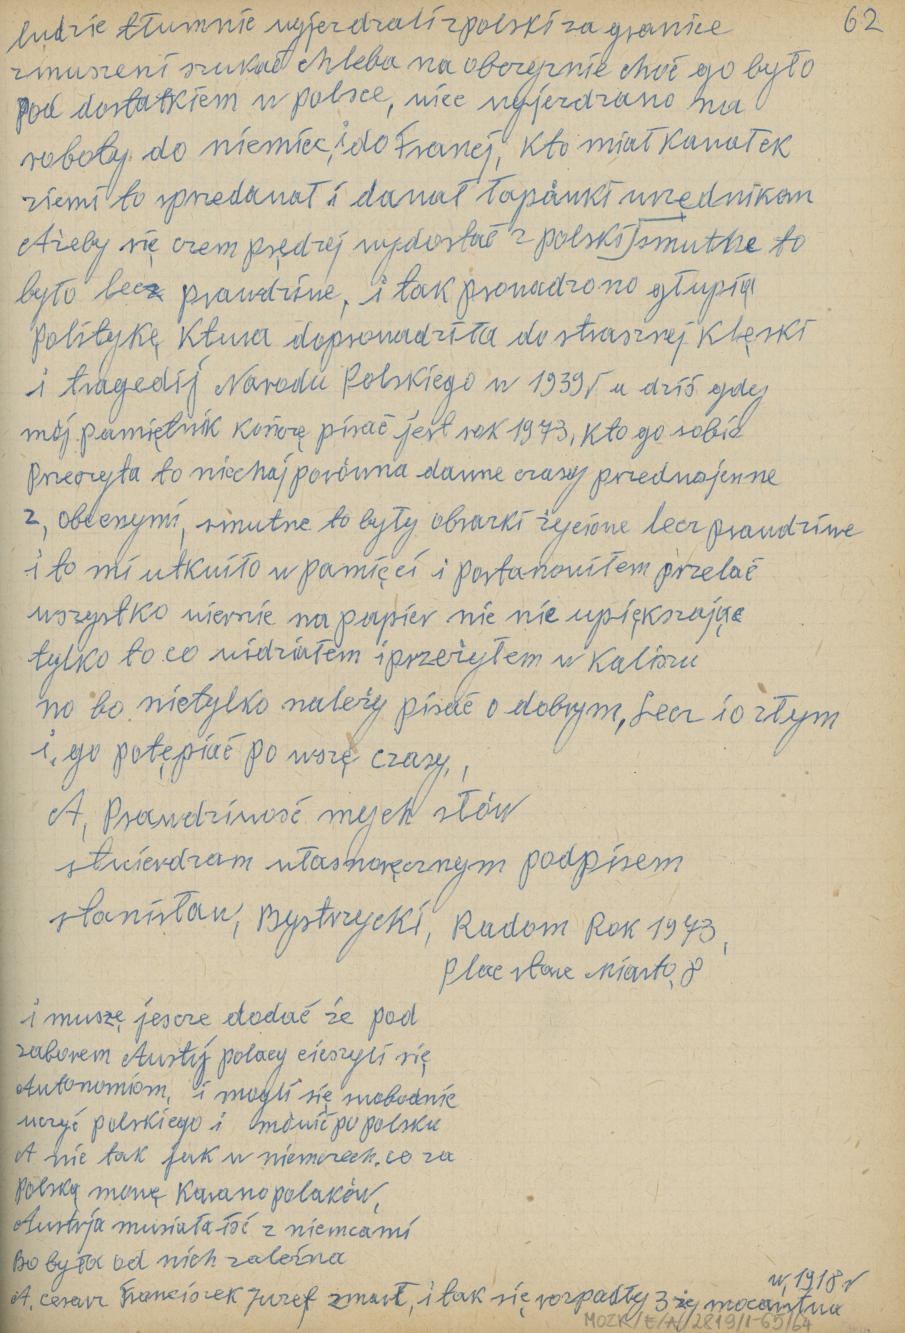 62
ludzie tłumnie wyjerdrali zpolski za granice
zmuszeni szukać chleba na obczyznie choć go było
pod dostatkiem w polsce, więc wyjezdzano na
roboty do niemiec, i do Francj, Kto miał Kawałek
ziemi to sprzedawał i dawał łapówki urzędnikom
Ażeby się czem prędzej wydostać z polski, smutne to
było lecz prawdziwe, i tak prowadzono głupią
politykę Ktura doprowadziła do strasznej Klęski
i tragedij Narodu Polskiego w 1939r a dziś gdy
mój pamiętnik kończę pisać jest rok 1973, kto go sobie
przeczyta to niechaj porówna dawne czasy przedwojenne
z, obecnymi, smutne to były obrazki życiowe lecz prawdziwe
i to mi utkwiło w pamięci i postanowiłem przelać
wszystko wiernie na papier nic nie upiększając
tylko to co widziałem i przeżyłem w Kaliszu
no bo nietylko należy pisać o dobrym, Lecz i o złym
i, go potępiać po wszę czasy,,
A, Prawdziwość mych słów
stwierdzam własnoręcznym podpisem
stanisław, Bystrzycki, Radom Rok 1973,
plac stare Miasto, 8
i muszę jescze dodać że pod
zaborem Austrij polacy cieszyli się
Autonomiom, i mogli się swobodnie
uczyć polskiego i mówić po polsku
A nie tak jak w niemczech, co za
polską mowę Karano polaków,
Austrja musiała iść z niemcami
Bo była od nich zależna
A, cesarz Franciszek Juzef zmarł, i tak się rozpadły 3 zy mocarstwa
w, 1918 r
MOZK/E/A/2819/1-65/64